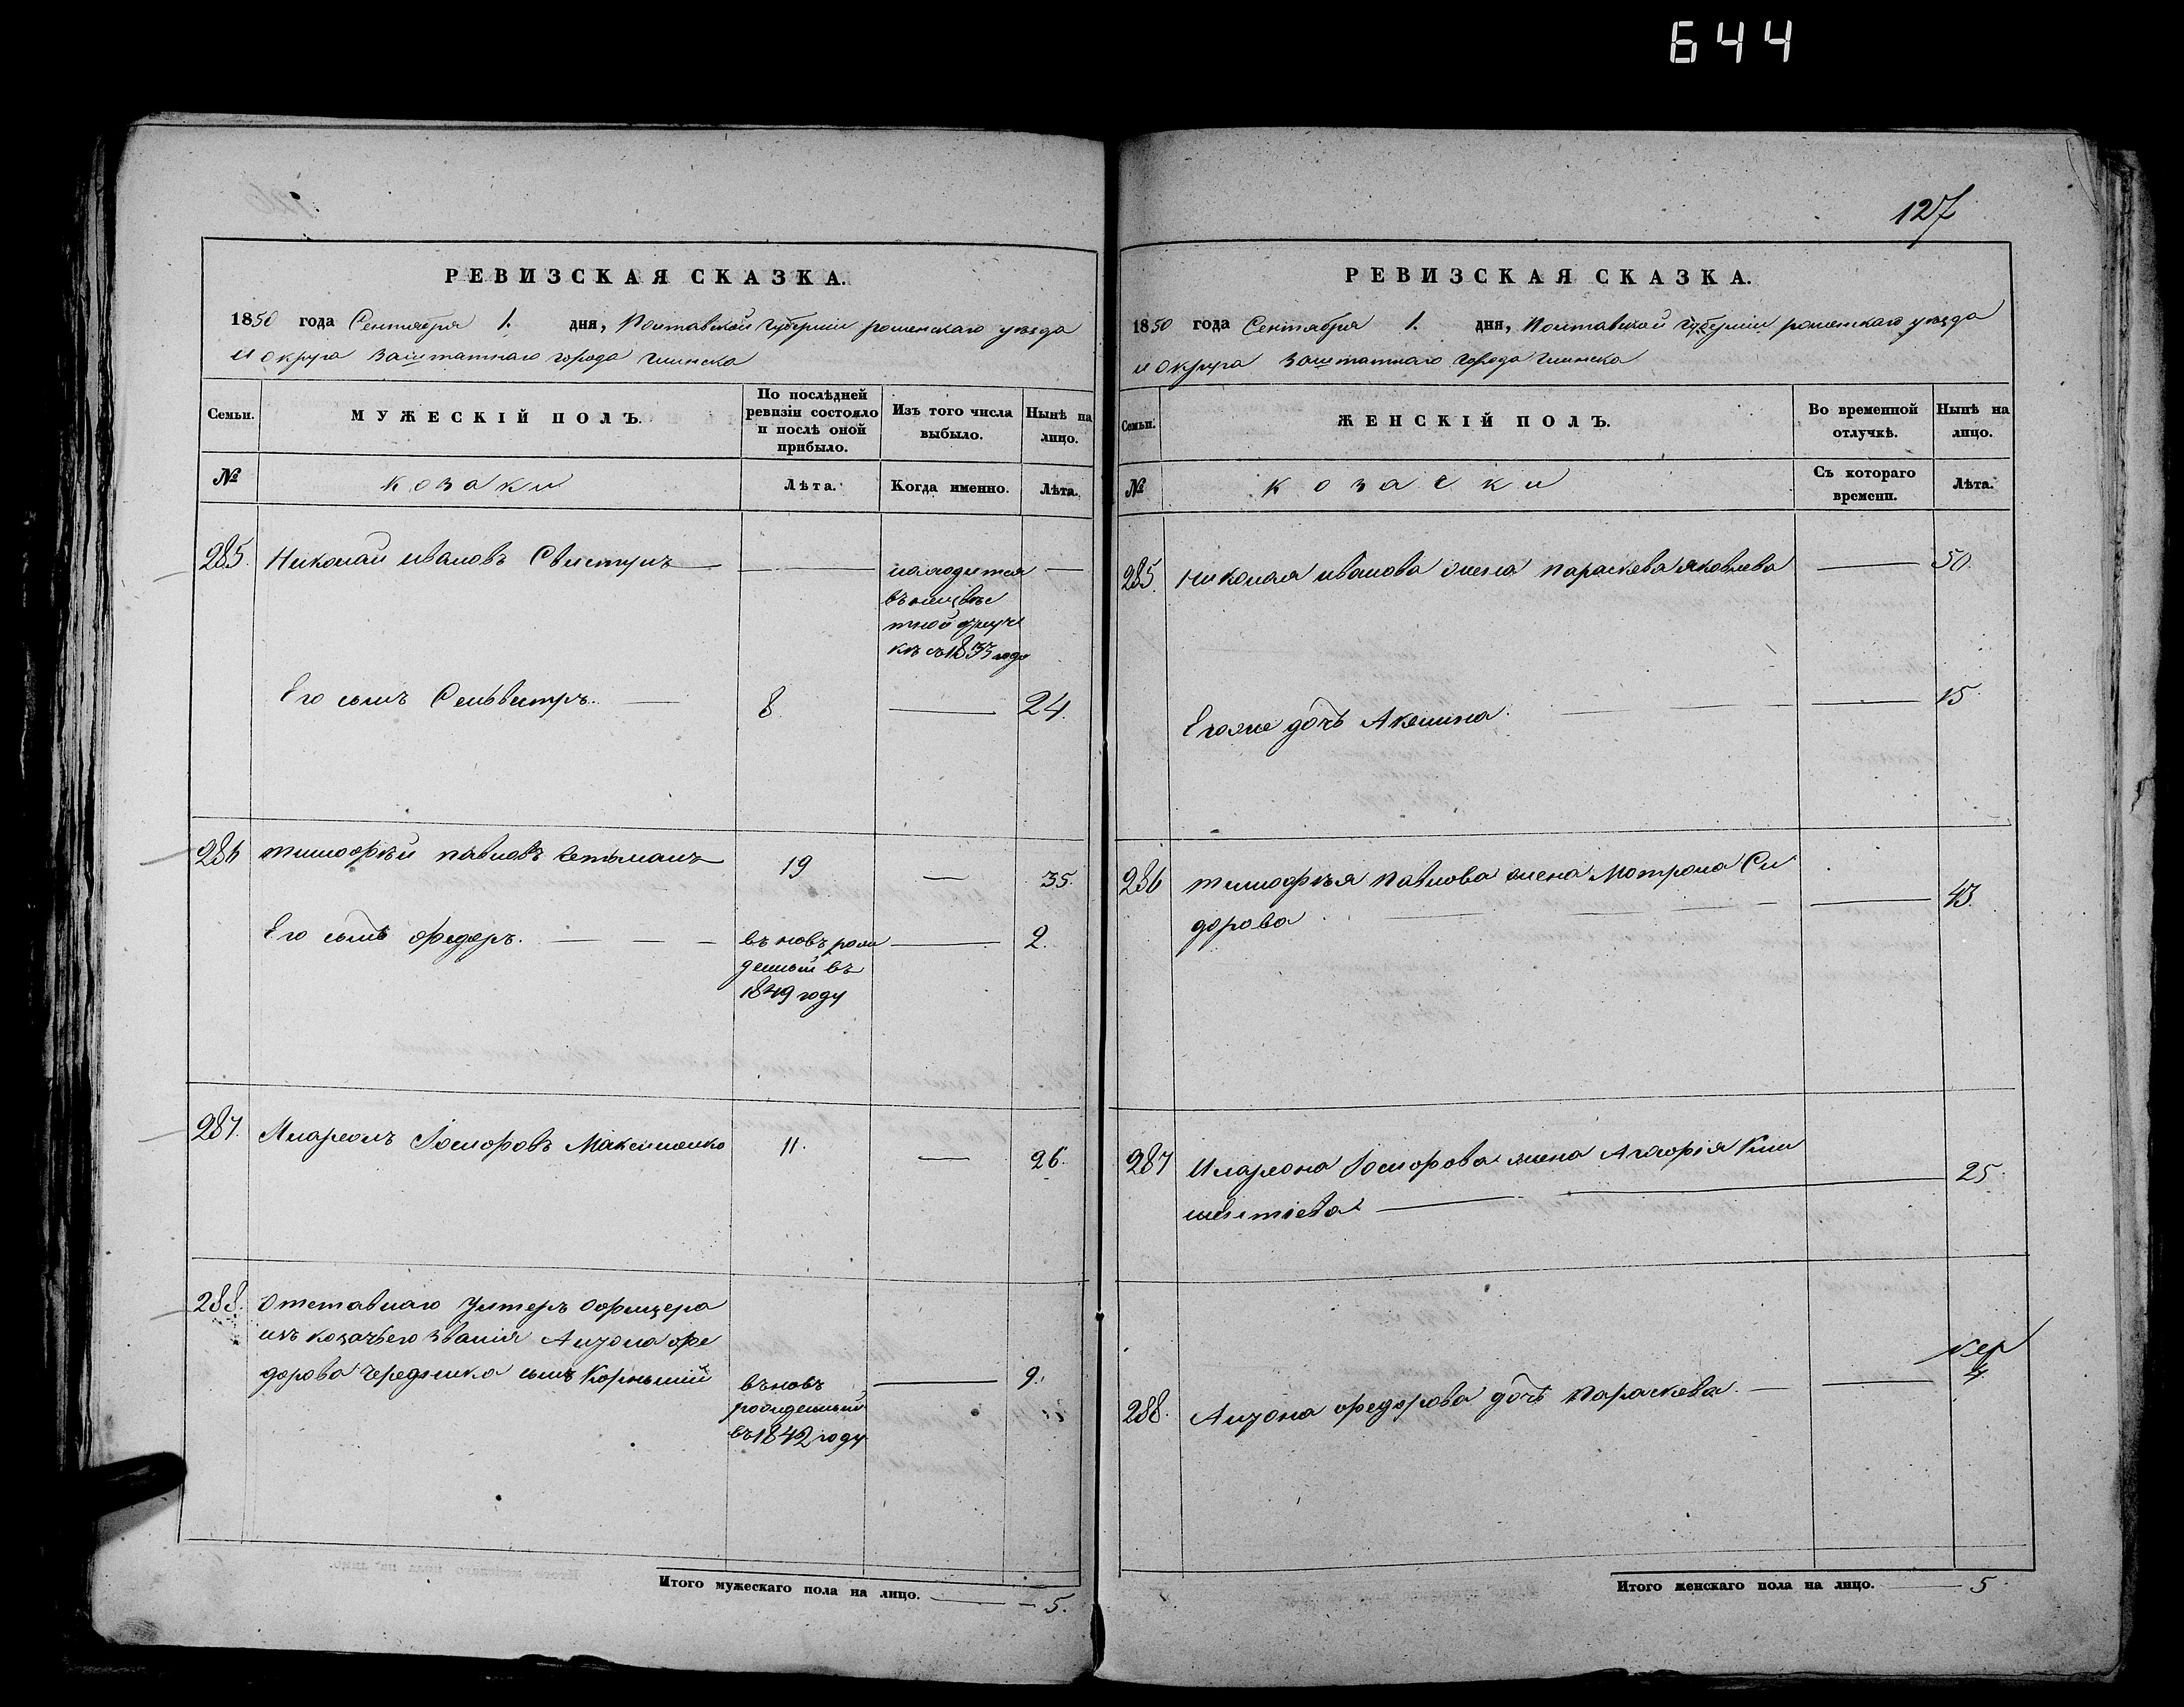 644
127
РЕВИЗСКАЯ СКАЗКА.
1850 года Сентября 1. дня, Полтавской губерніи роменскаго уезда
и округа заштатнаго города глинска
Семьи.
МУЖЕСКІЙ ПОЛЪ.
По послѣдней
ревизіи состояло
и послѣ оной
прибыло.
Изъ того числа
выбыло.
Нынѣ на
лицо.
№
козаки
Лѣта.
Когда именно.
Лѣта.
285. Николай ивановъ Свистунъ — — находится —
въ неизвѣс
тной отлуч
кѣ съ 1833 года
Его сынъ Сельвестръ. — 8. — 24.
286 тимофѣй павловъ гетьманъ 19 — 35.
Его сынъ федоръ. — — — въ новъ рож — 2.
денный въ
1849 году
287. Иларіонъ Максименко 11. — 26.
288. Отставнаго Унтеръ Офицера
изъ козачьего званія фе
дорова Чередника сынъ Корнилий въновь — 9.
рожденный
въ 1842 году
Итого мужескаго пола на лицо. — — 5.
РЕВИЗСКАЯ СКАЗКА.
1850 года Сентября 1. дня, Полтавской губерніи роменскаго уезда
и округа заштатнаго города глинска
Семьи.
ЖЕНСКІЙ ПОЛЪ.
Во временной
отлучкѣ.
Нынѣ на
лицо.
№
козачки
Съ котораго
времени.
Лѣта.
285. николая иванова жена параскева яковлева — 50.
Егоже дочь Акелина. — — — — 15.
286 тимофѣя павлова жена Мотрона Си
дорова — — — — 43.
287 Иларіона жена Агафія Кли
ментіева — — 25.
288. федорова дочь параскева. — — 4.
Итого женскаго пола на лицо. — 5